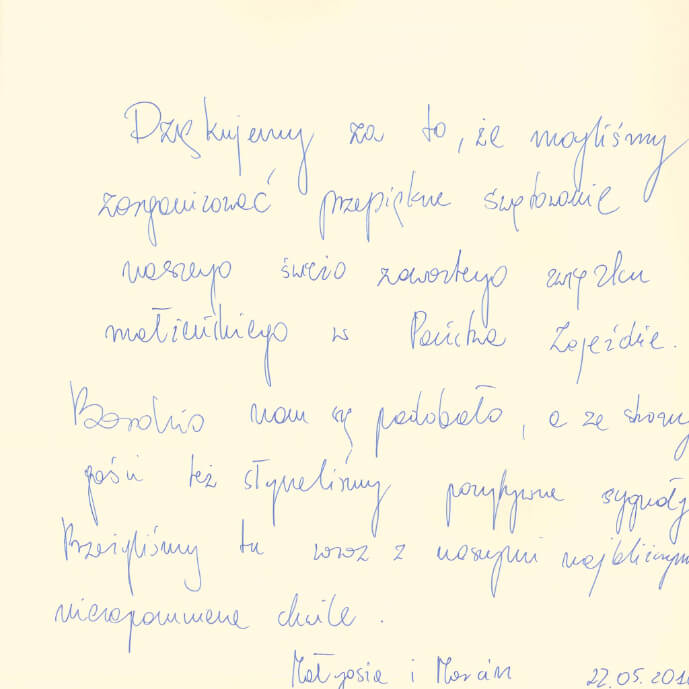 Dziękujemy za to, że mogliśmy
zorganizować przepiękne świętowanie
naszego świeżo zawartego związku
małżeńskiego w Państwa Zajeździe.
Bardzo nam się podobało, a ze strony
gości też słyneliśmy pozytywne sygnały
Przeżyliśmy tu wraz z naszymi najbliższymi
niezapomniane chwile.
Małgosia i Marcin 22.05.201